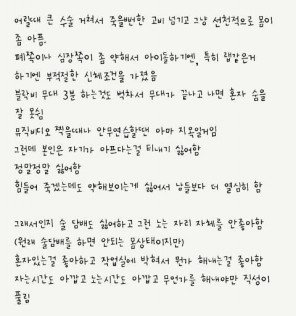 어릴때 큰 수술 거쳐서 죽을뻔한 고비 넘기고 그냥 선천적으로 몸이
좀 아픔.
폐쪽이나 심장쪽이 좀 약해서 아이돌하기에, 특히 랩같은거
하기에 부적절한 신체조건을 가졌음
불락비 무대 3분 하는것도 벅차서 무대가 끝나고 나면 혼자 숨을
잘 못쉼
뮤직비디오 찍을때나 안무연습할땐 아마 지옥일거임
그런데 본인은 자기가 아프다는걸 티내기 싫어함
정말정말 싫어함
힘들어 죽겠는데도 약해보이는게 싫어서 남들보다 더 열심히 함

그래서인지 술 담배도 싫어하고 그런 노는 자리 자체를 안좋아함
(원래 술담배를 하면 안되는 몸상태이지만)
혼자있는걸 좋아하고 작업실에 박혀서 뭔가 해내는걸 좋아함
자는시간도 아깝고 노는시간도 아깝고 무언가를 해내야만 직성이
풀림